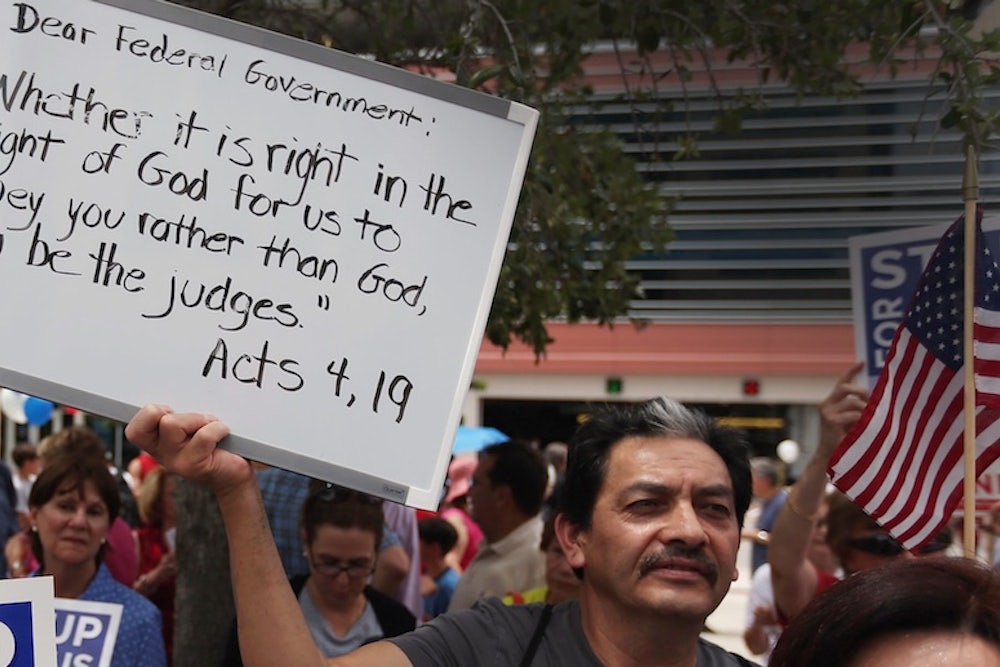 Dear Federal Government:
Whether it is right in the
of God for us to
you rather than God,
be the judges."
Acts 4,19
ST
FOR
UP
US